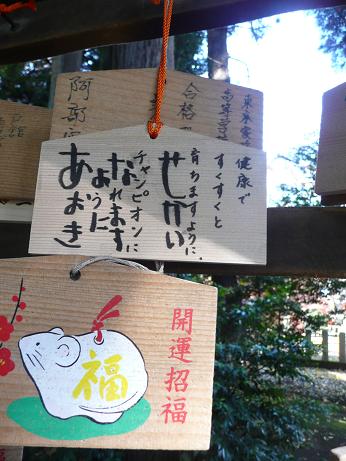 合格
健康で
すくすくと
育ちますように、
せかい
チャンピオンに
なれます
ように
あおき
開運招福
福